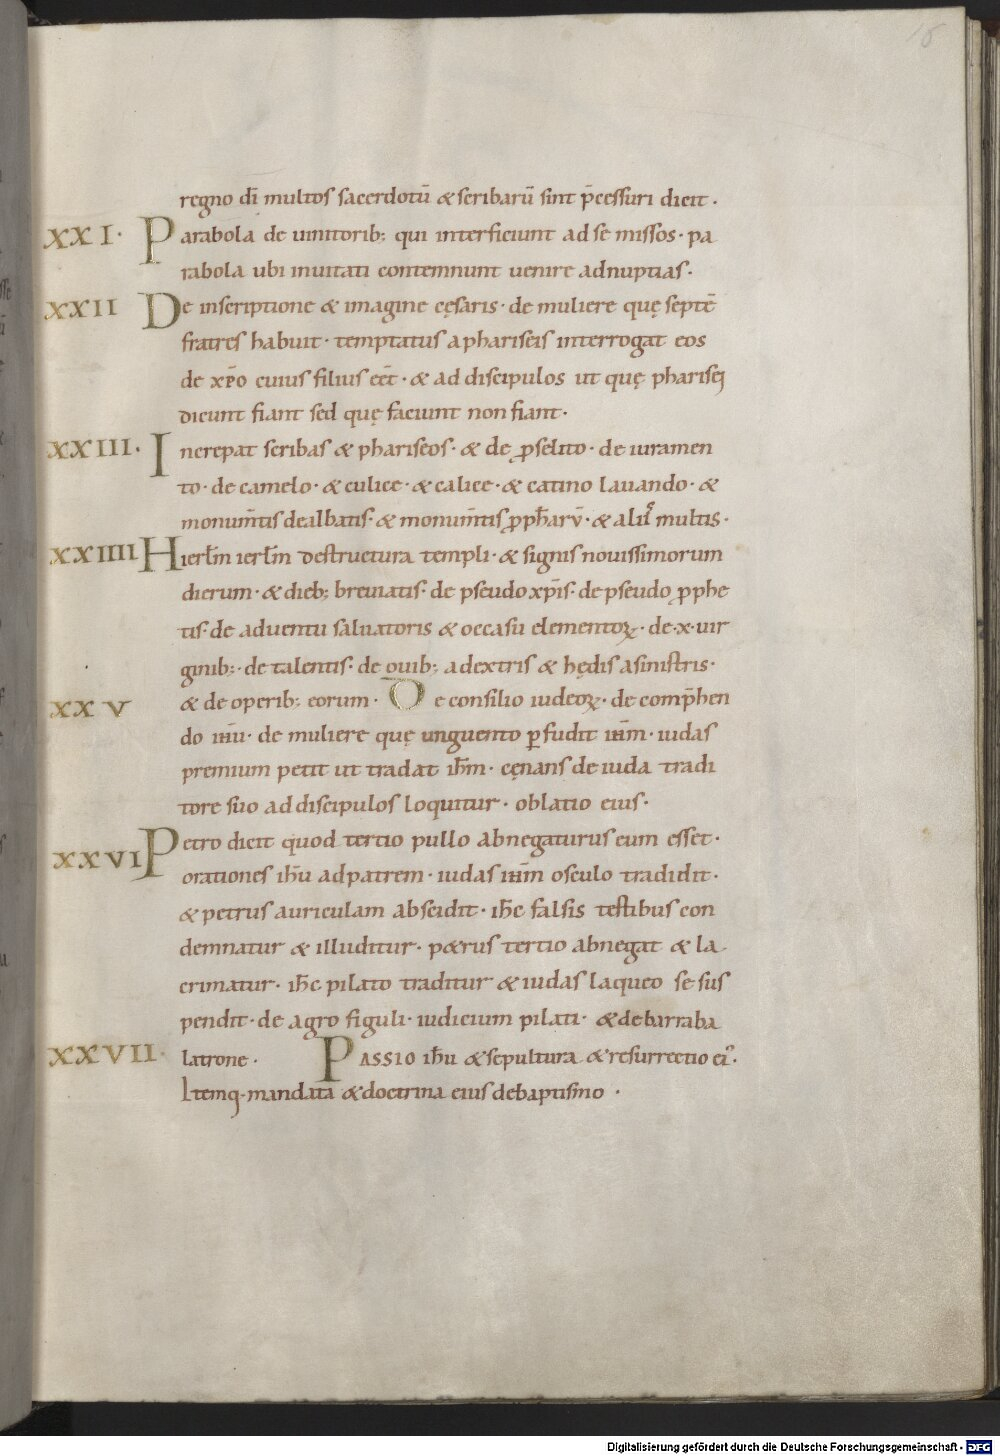 15
regno dī multos sacerdotū & scribarū sint p̄cessuri dicit ·
XXI · Parabola de uinitorib; qui interficiunt ad se missos · pa
rabola ubi inuitati contemnunt uenire ad nuptias ·
XXII De inscriptione & imagine cęsaris · de muliere quę septē
fratres habuit · temptatus a phariseis interrogat eos
de xp̄o cuius filius eēt · & ad discipulos ut quę pharisęi
dicunt fiant sed quę faciunt non fiant ·
XXIII · Increpat scribas & phariseos · & de ꝓselito · de iuramen
to · de camelo · & culice · & calice · & catino lauando · &
monum̄tis dealbatis · & monum̄tis ꝓph̄arū · & aliis multis ·
XXIIII Hierl̄m ierl̄m destructura templi · & signis nouissimorum
dierum · & dieb; breuiatis · de pseudo xp̄is · de pseudo ꝓphe
tis · de aduentu saluatoris & occasu elementoꝝ · de · x · uir
ginib; · de talentis · de ouib; a dextris & hędis a sinistris ·
XXV & de operib; eorum · De consilio iudeoꝝ · de comp̄hen
do ih̄u · de muliere quę unguento ꝑfudit ih̄m · iudas
premium petit ut tradat ih̄m · cęnans de iuda tradi
tore suo ad discipulos loquitur · oblatio eius ·
XXVI Petro dicit quod tertio pullo abnegaturus eum esset ·
orationes ih̄u ad patrem · iudas ih̄m osculo tradidit ·
& petrus auriculam abscidit · ih̄c falsis testibus con
demnatur & illuditur · p&rus tertio abnegat & la
crimatur · ih̄c pilato traditur & iudas laqueo se sus
pendit · de agro figuli · iudicium pilati · & de barraba
XXVII · latrone · PASSIO ih̄u & sepultura & resurrectio ei᾿ ·
Itemq · mandata & doctrina eius de baptismo ·
Digitalisierung gefördert durch die Deutsche Forschungsgemeinschaft - DFG